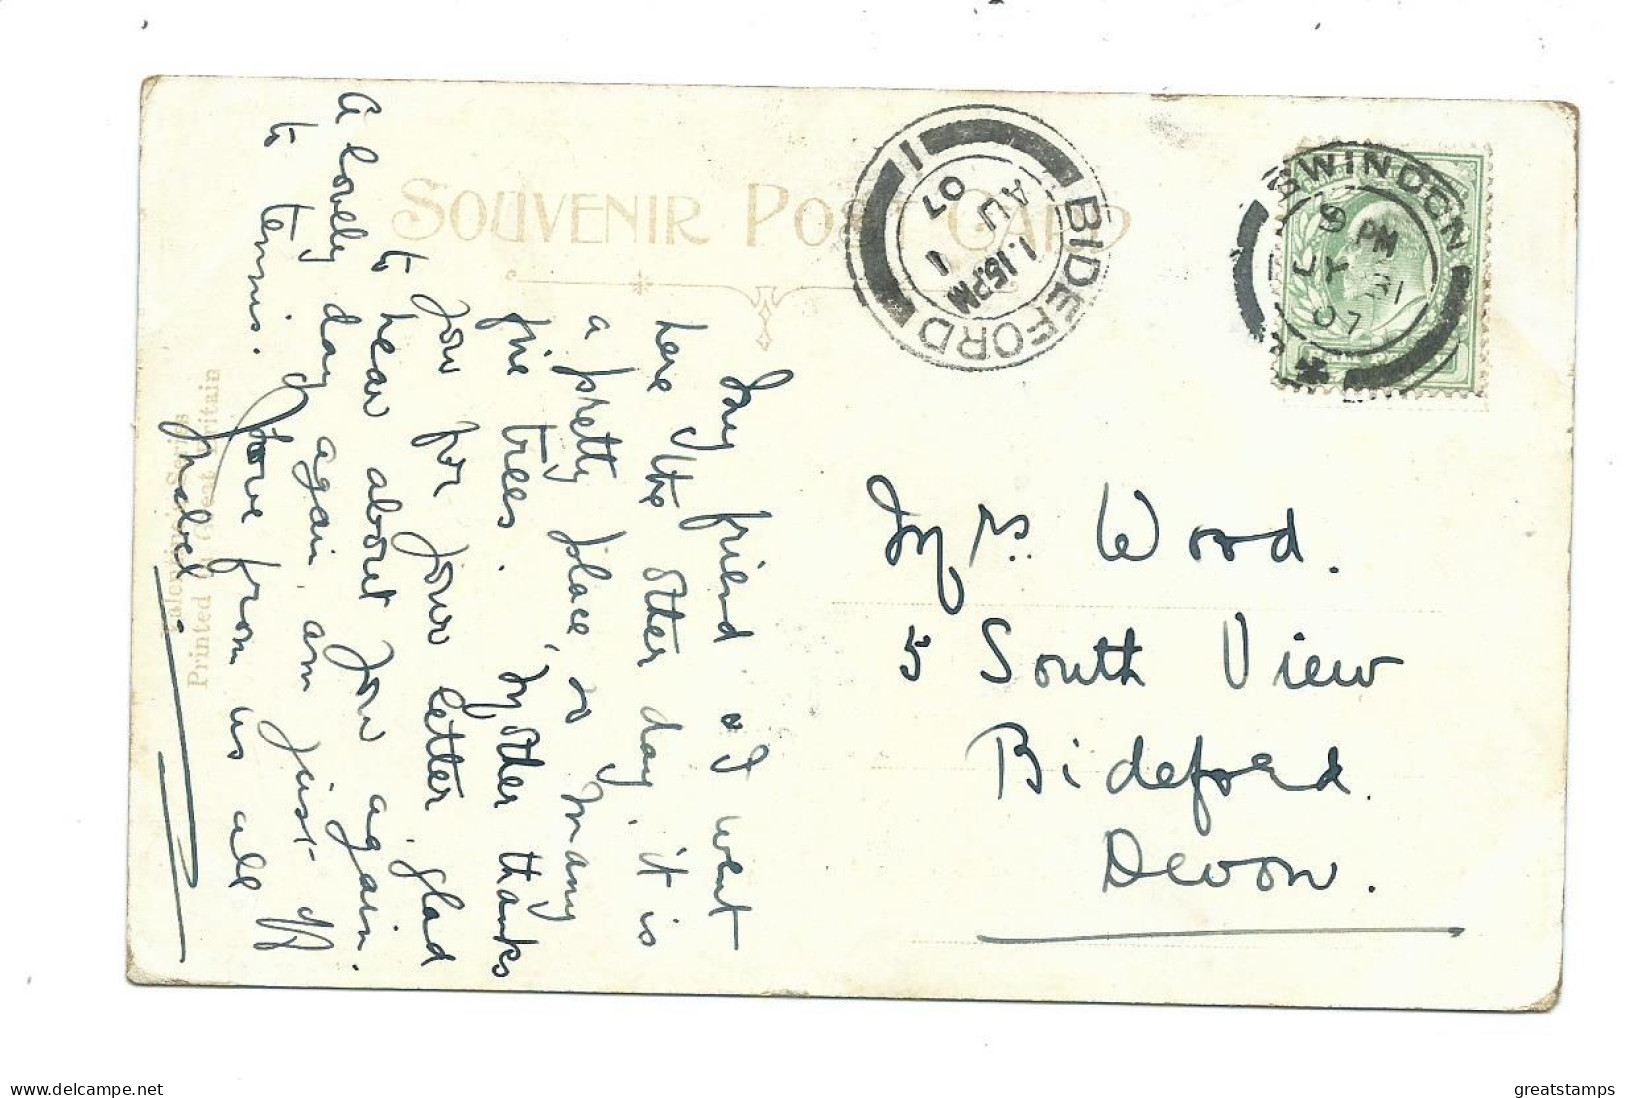 SOUVENIR POST CARD
BIDEFORD
1.15.PM
1
AU
07
1
SWINDON
6 PM
JY 31
07
Mrs. Wood.
5 South View
Bideford.
Devon.
My friend & I went
here the other day, it is
a pretty place, so many
fine trees. Mother thanks
you for your letter, glad
to hear about you again.
A lovely day again, am just off
to tennis. Love from us all
Mabel
Printed in Great Britain
delcampe.net
greatstamps